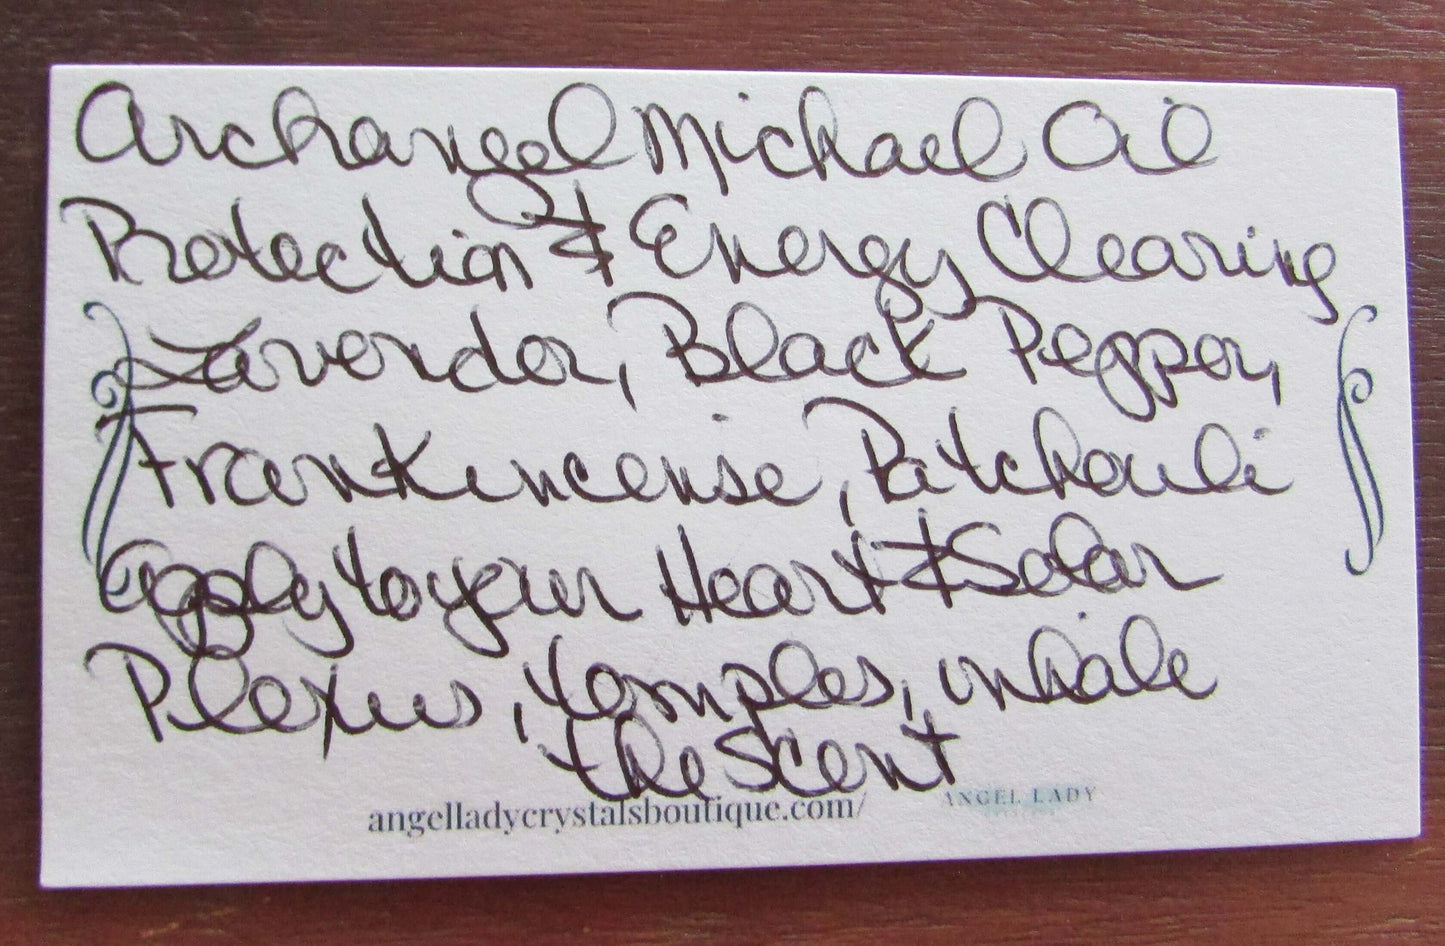 Archangel Michael Oil
Protection & Energy Clearing
Lavender, Black Pepper,
Frankincense, Patchouli
apply to your Heart & Solar
Plexus, temples, inhale
the Scent
angelladycrystalsboutique.com/
ANGEL LADY